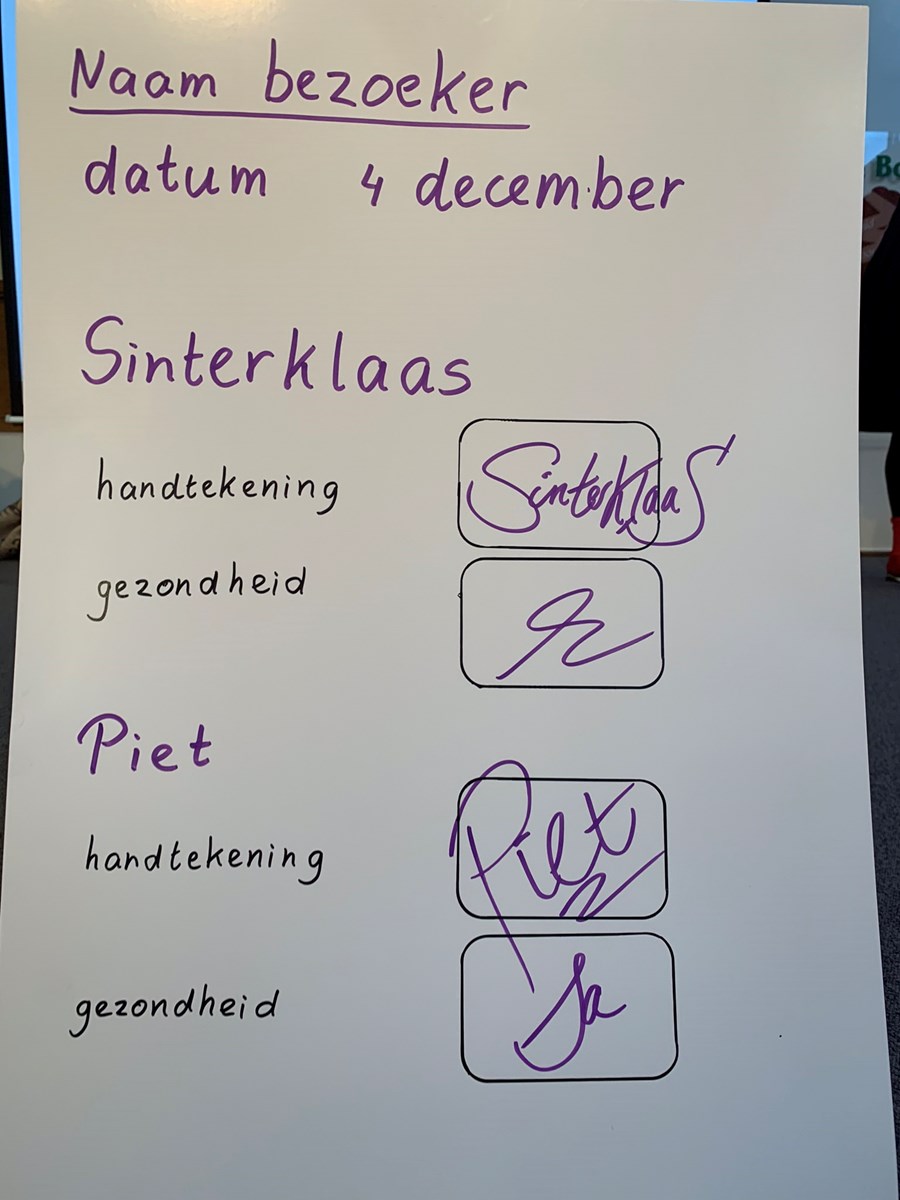 Naam bezoeker
datum 4 december
Sinterklaas
handtekening Sinterklaas
gezondheid
Piet
handtekening Piet
gezondheid Ja